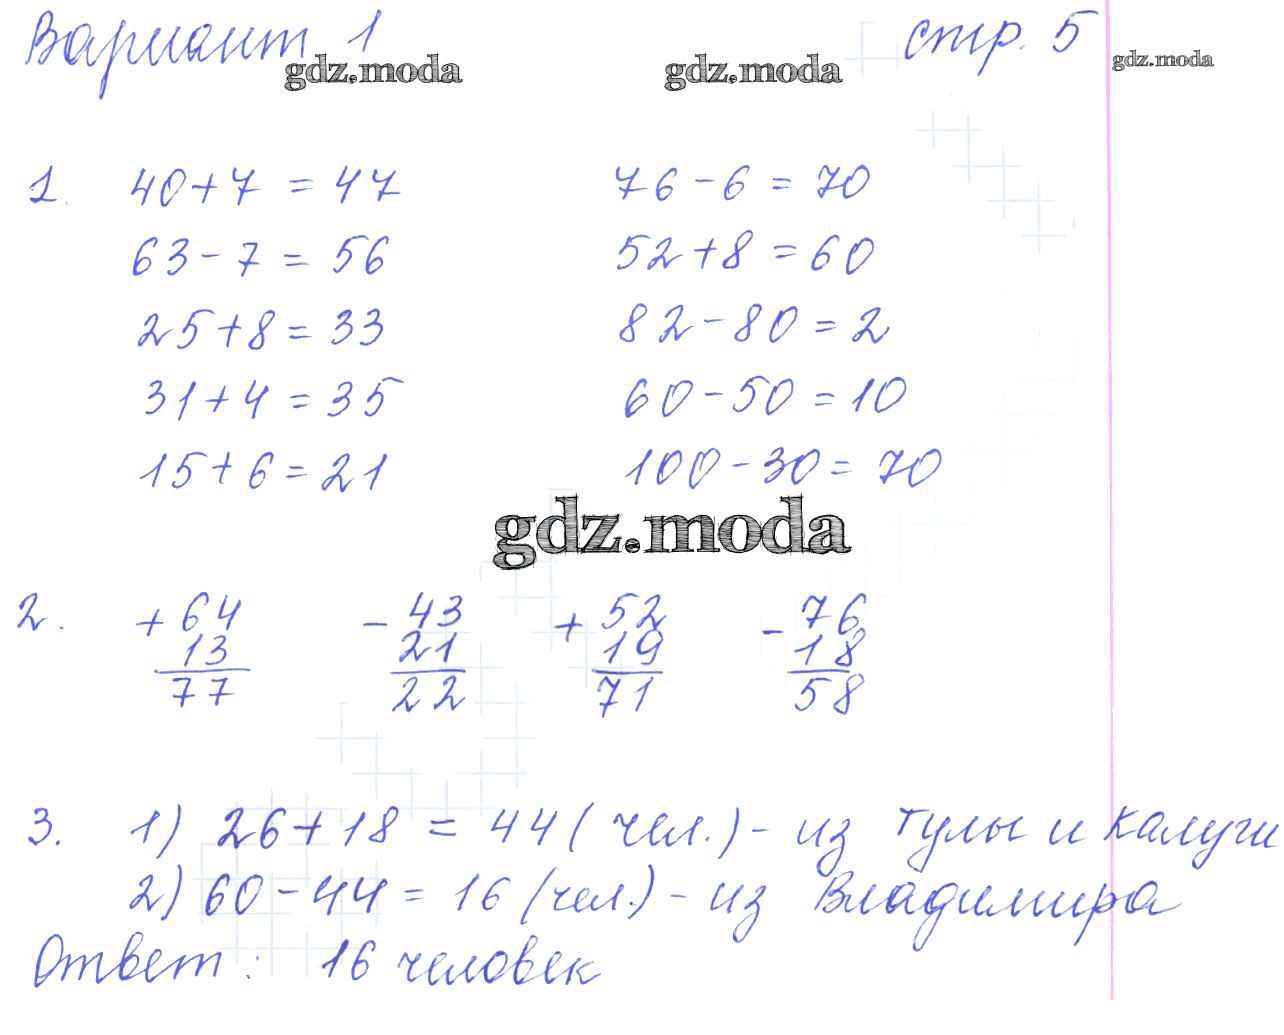 Вариант 1 стр. 5
gdz.moda gdz.moda gdz.moda
1. 40+7 = 47 76-6 = 70
63-7 = 56 52+8 = 60
25+8 = 33 82-80 = 2
31+4 = 35 60-50 = 10
15+6 = 21 100-30 = 70
gdz.moda
2. + 64 - 43 + 52 - 76
13 21 19 18
77 22 71 58
3. 1) 26+18 = 44 (чел.) - из Тулы и Калуги
2) 60-44 = 16 (чел.) - из Владимира
Ответ: 16 человек